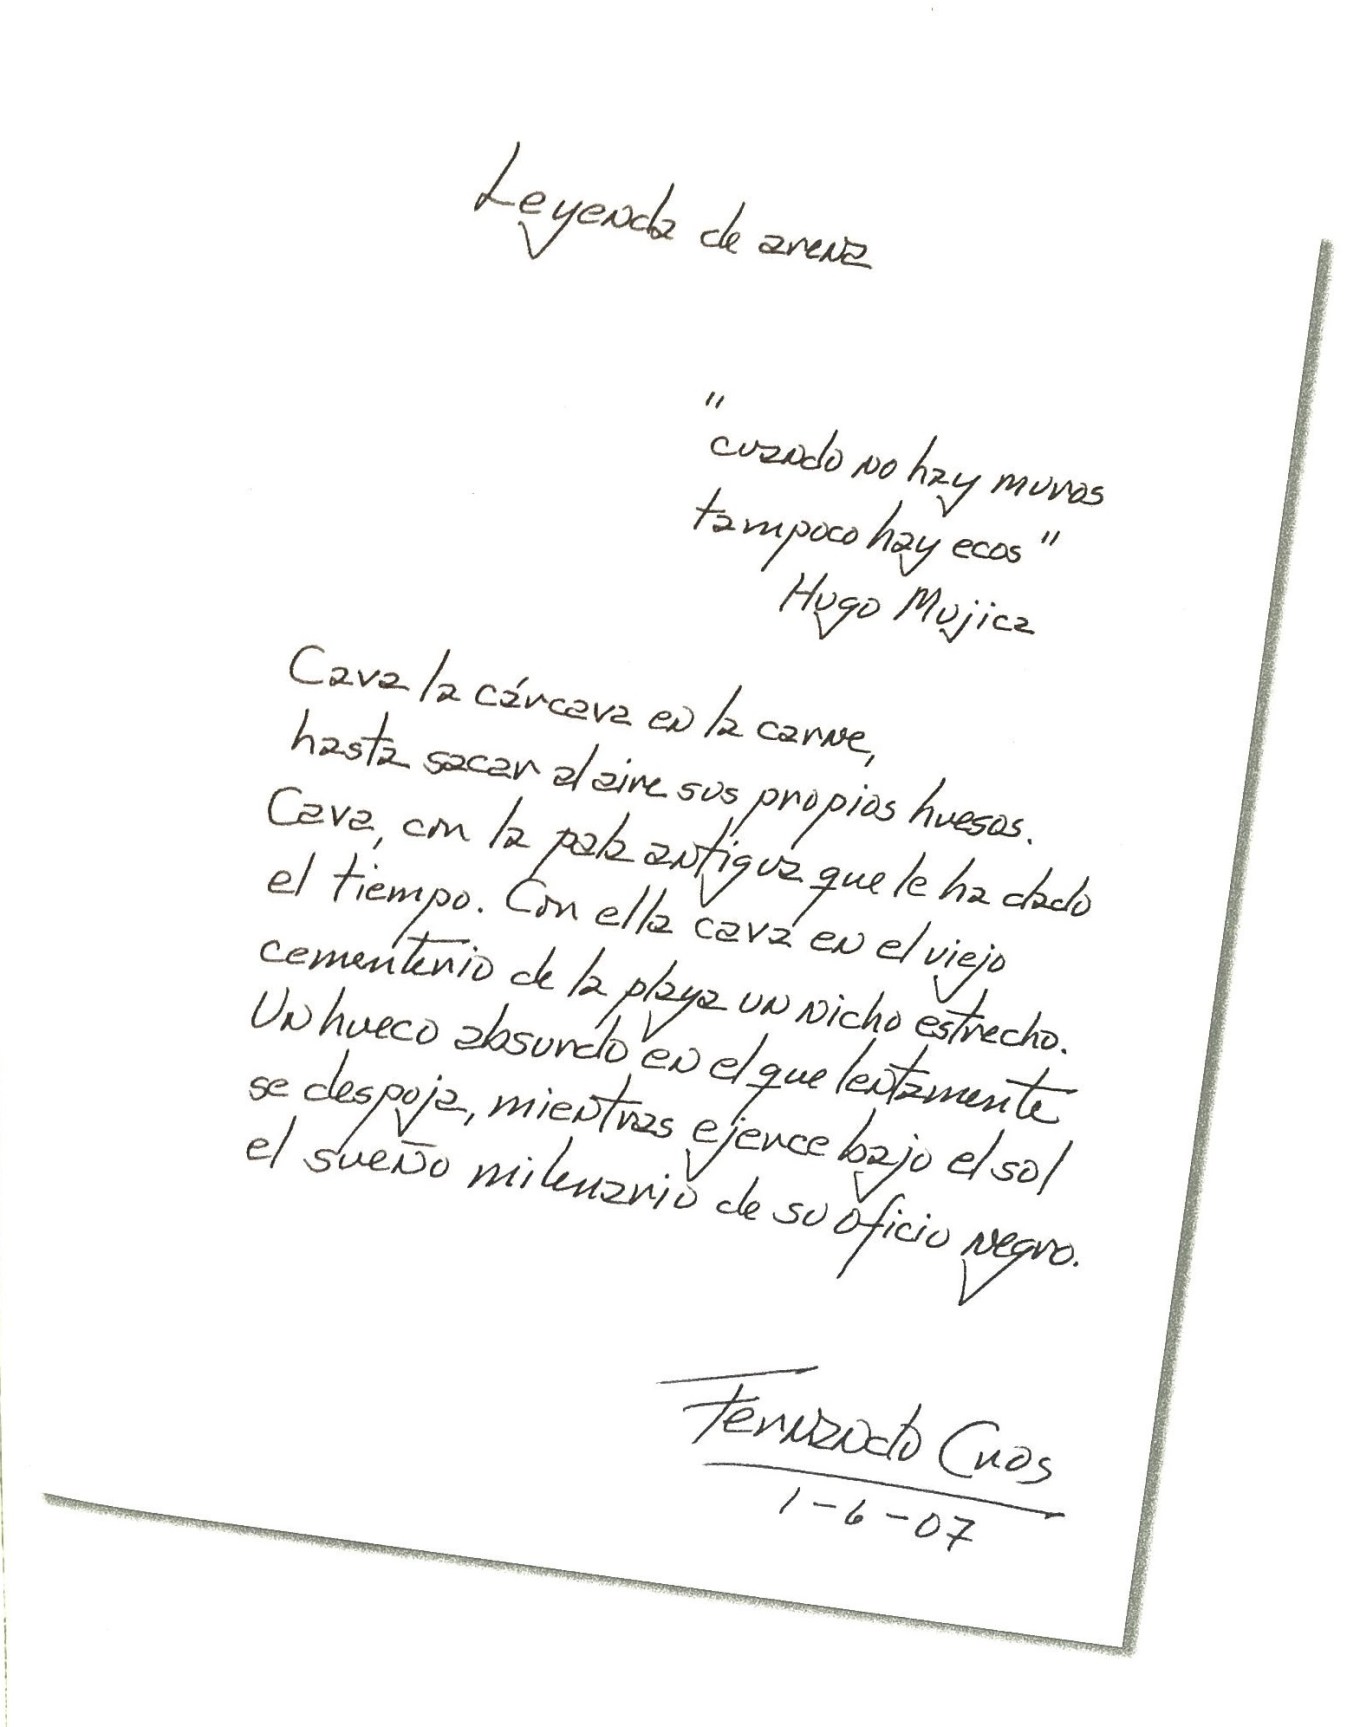 Leyenda de arena
"
cuando no hay muros
tampoco hay ecos"
Hugo Mujica
Cava la cárcava en la carne,
hasta sacar al aire sus propios huesos.
Cava, con la pala antigua que le ha dado
el tiempo. Con ella cava en el viejo
cementerio de la playa un nicho estrecho.
Un hueco absurdo en el que lentamente
se despoja, mientras ejerce bajo el sol
el sueño milenario de su oficio negro.
Fernando Cros
1-6-07